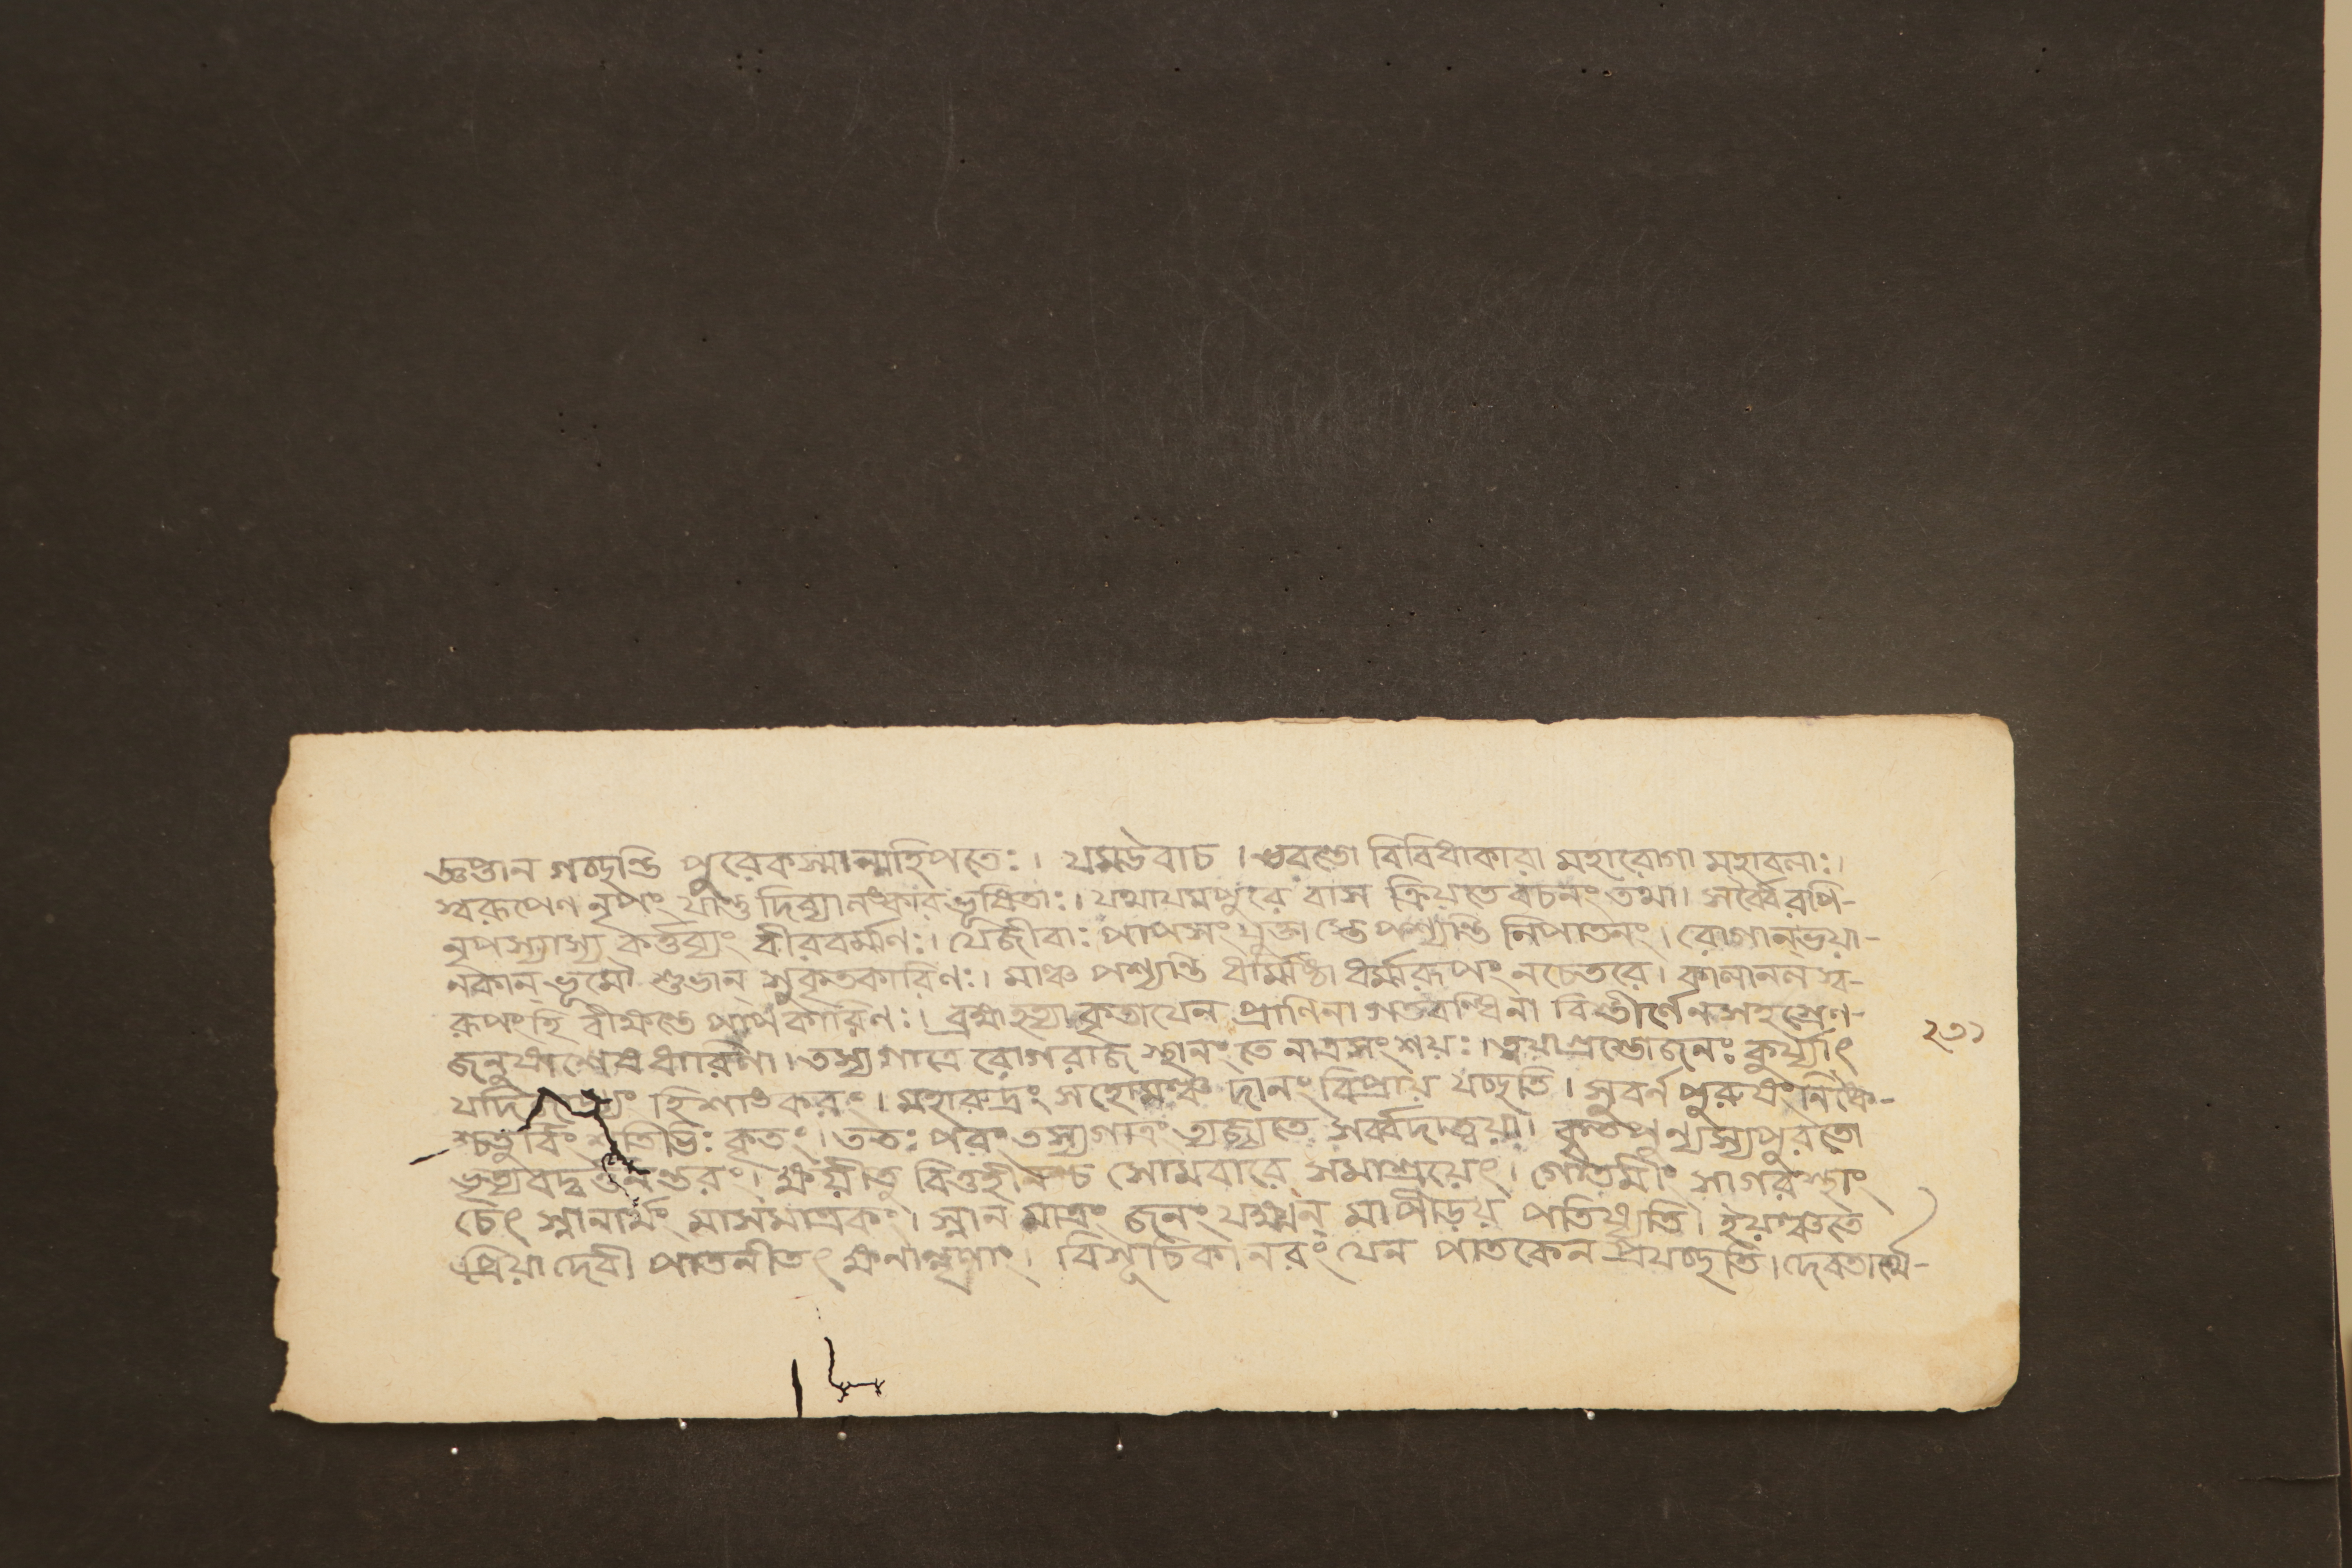 জ্ঞপ্তান গচ্ছন্তি পুরেকস্মান্মহিপতেঃ। যমউবাচ। ভবন্তো বিবিধাকারা মহারোগা মহাবলাঃ।
স্বরূপেণ নৃপং যান্তু দিব্যালঙ্কারভূষিতাঃ। যথাযমপুরে বাস ক্রিয়তে বচনং তথা। সর্ব্বৈরপি-
নৃপস্যাস্য কর্ত্তব্যং বীরবর্ম্মণঃ। যেজীবাঃ পাপসংযুক্তা স্তে পশ্যন্তি নিপাতনং। রোগান্ভয়া-
নকান্ ভূমৌ শুভান্ সুকৃতকারিণঃ। মাঞ্চ পশ্যন্তি ধর্ম্মিষ্ঠা ধর্ম্মরূপং নচেতরে। কালানল স্ব-
রূপংহি বীক্ষন্তে পাপকারিণঃ। ব্রহ্মহত্যা কৃতাযেন প্রাণিনা গতবন্ধিনা বিস্তীর্ণেনসহস্রেণ-
জনুষাশ্লেষধারিণা। তস্যগাত্রে রোগরাজ স্থানং তে নাত্রসংশয়ঃ। ত্বয়াগ্রস্তোজনঃ কুর্য্যাৎ
যদি হিশাঙকরং। মহারুদ্রং সহোমঞ্চ দানং বিপ্রায় যচ্ছতি। সুবর্ন পুরুষং নিষ্কৈ-
শ্চতুর্বিংশতিভিঃ কৃতং। ততঃ পরং তস্যগাত্রং ত্যজ্যতে সর্ব্বদাত্বয়া। কৃতপুণ্যস্যপুরতো
ভৃত্যবদ্ব র্ত্তনন্তরং। ক্ষয়ীতু বিত্তহীনশ্চ সোমবারে সমাশ্রয়েৎ। গৌতমীং সাগরস্থাং
চেৎ স্নানার্থং মাসমাত্রকং। স্নান মাত্রং জনং যক্ষ্মন্ মাপীড়য় পতিষ্যতি। ইয়ঞ্চতে
প্রিয়া দেবী পাতনীতৎ ক্ষনান্নৃণাং। বিশূচিকা নরং যেন পাতকেন প্রযচ্ছতি। দেবতার্থে-
২৩১